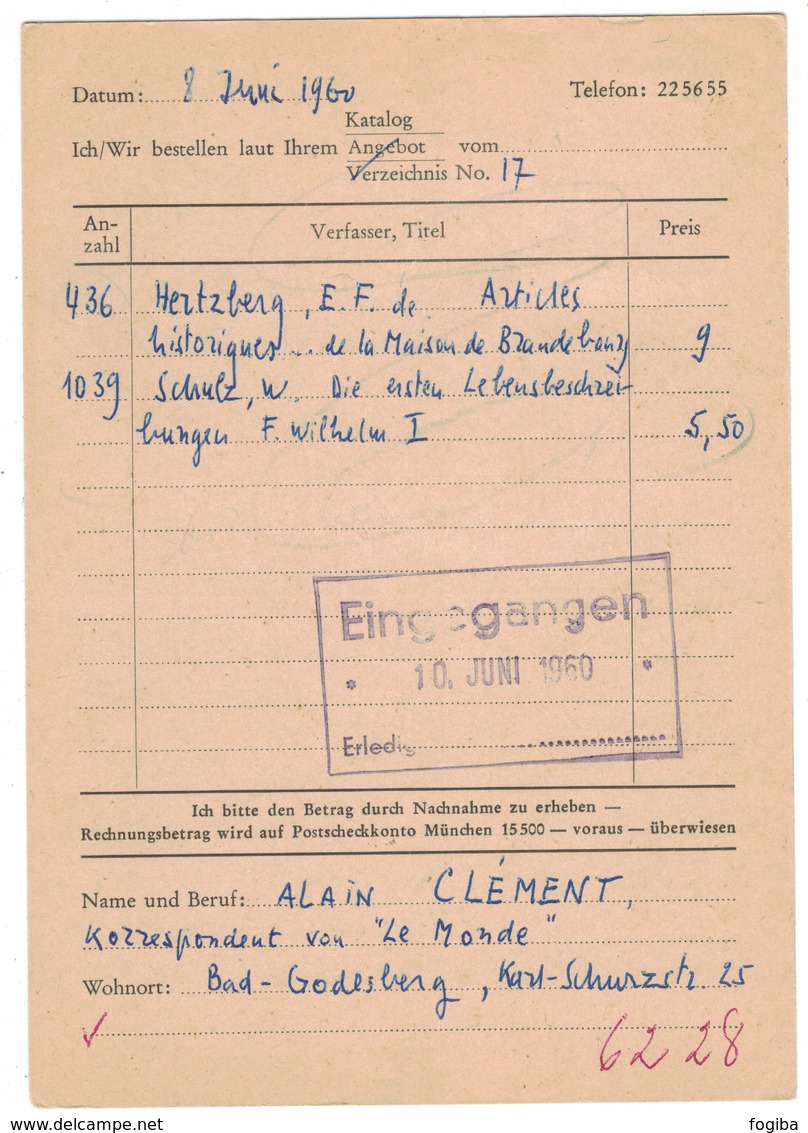 Datum: 8 Juni 1960 Telefon: 225655
Katalog
Ich/Wir bestellen laut Ihrem Angebot vom
Verzeichnis No. 17
An-
zahl Verfasser, Titel Preis
436 Hertzberg, E. F. de Articles
historiques... de la Maison de Brandebourg 9
1039 Schulz, W. Die ersten Lebensbeschrei-
bungen F. Wilhelm I 5,50
Eingegangen
* 10. JUNI 1960 *
Erledig
Ich bitte den Betrag durch Nachnahme zu erheben —
Rechnungsbetrag wird auf Postscheckkonto München 15500 — voraus — überwiesen
Name und Beruf: ALAIN CLÉMENT,
Korrespondent von "Le Monde"
Wohnort: Bad-Godesberg, Karl-Schurzstr. 25
6228
fogiba